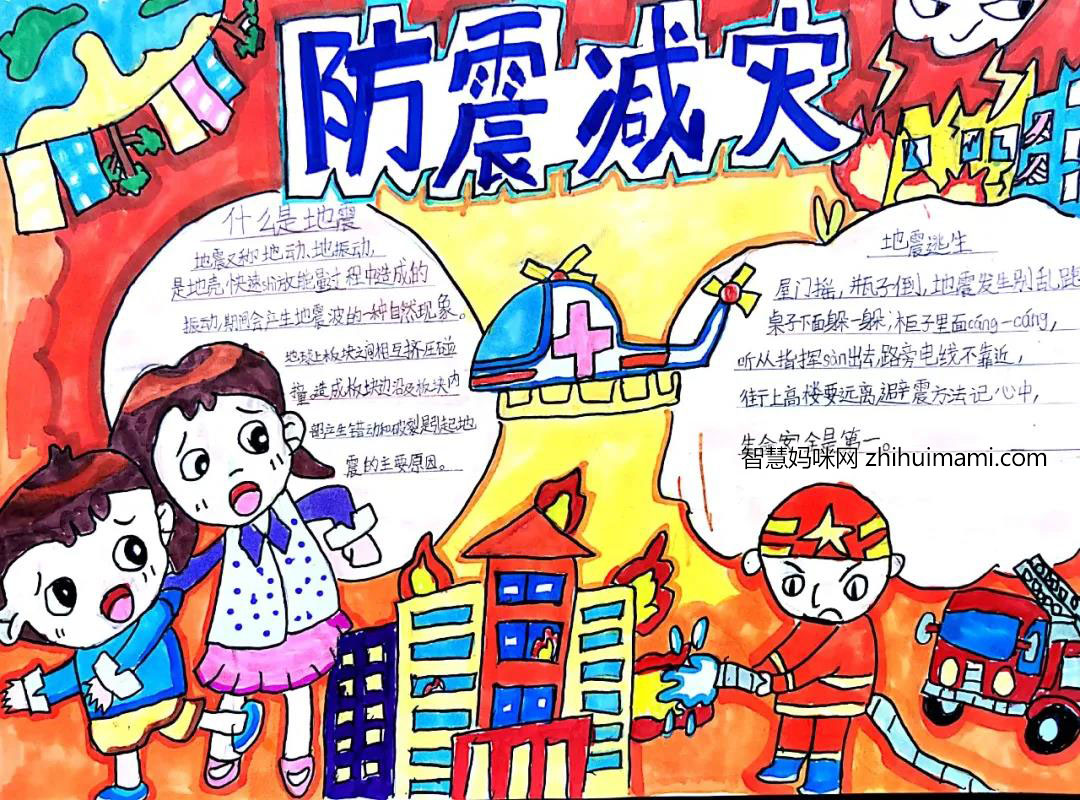 防震减灾
什么是地震
地震又称地动、地振动,
是地壳快速shì放能量过程中造成的
振动,期间会产生地震波的一种自然现象。
地球上板块之间相互挤压碰
撞,造成板块边沿及板块内
部产生错动和破裂是引起地
震的主要原因。
地震逃生
屋门摇,瓶子倒,地震发生别乱跑
桌子下面躲一躲;柜子里面cáng一cáng,
听从指挥sàn出去,路旁电线不靠近,
街上高楼要远离,避震方法记心中,
生命安全是第一。
智慧妈咪网 zhihuimami.com